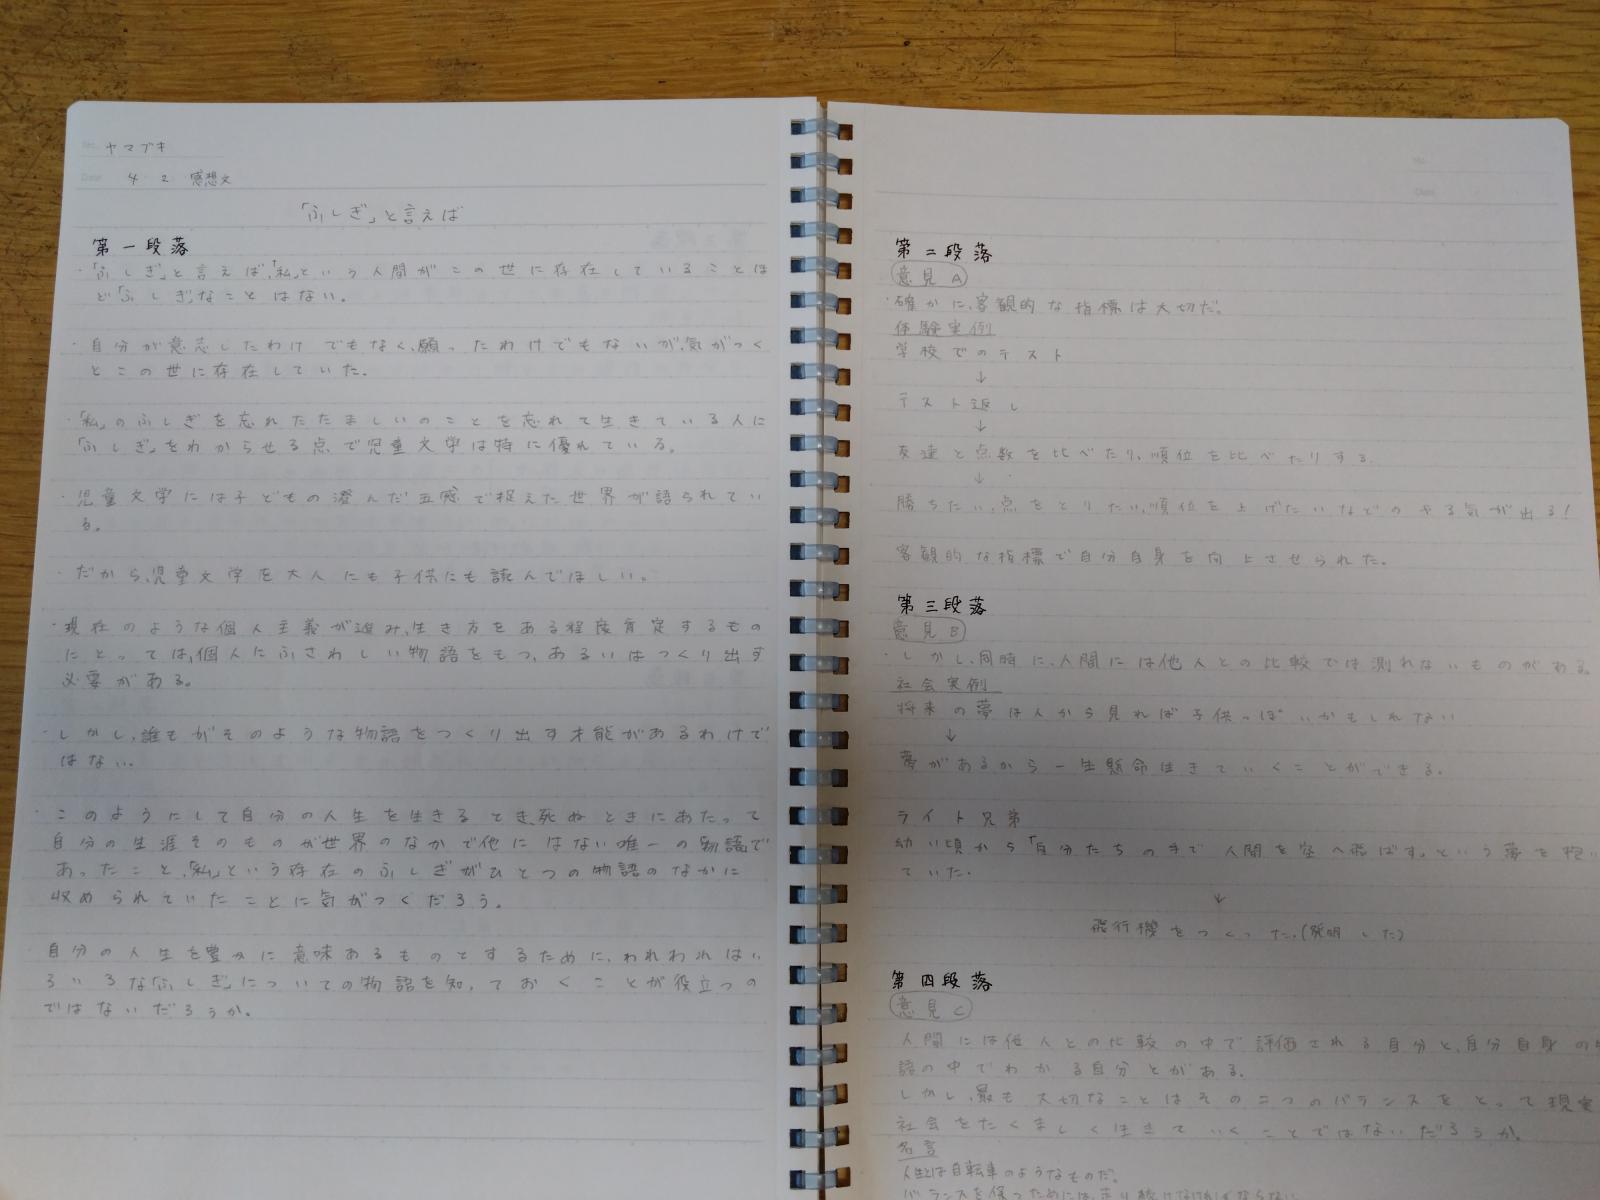 No. ヤマブキ
Date 4 2 感想文
「ふしぎ」と言えば
第一段落
・「ふしぎ」と言えば、「私」という人間がこの世に存在していることほ
ど「ふしぎ」なことはない。
・自分が意志したわけでもなく、願ったわけでもないが、気がつく
とこの世に存在していた。
・「私」のふしぎを忘れたたましいのことを忘れて生きている人に
「ふしぎ」をわからせる点で児童文学は特に優れている。
・児童文学には子どもの澄んだ五感で捉えた世界が語られてい
る。
・だから、児童文学を大人にも子供にも読んでほしい。
・現在のような個人主義が進み、生き方をある程度肯定するもの
にとっては、個人にふさわしい物語をもつ、あるいはつくり出す
必要がある。
・しかし、誰もがそのような物語をつくり出す才能があるわけで
はない。
・このようにして自分の人生を生きるとき、死ぬときにあたって
自分の生涯そのものが世界のなかで他にはない唯一の「物語」で
あったこと、「私」という存在のふしぎがひとつの物語のなかに
収められていたことに気がつくだろう。
・自分の人生を豊かに意味あるものとするために、われわれはい
ろいろな「ふしぎ」についての物語を知っておくことが役立つの
ではないだろうか。
No.
Date
第二段落
意見A
・確かに、客観的な指標は大切だ。
体験実例
学校でのテスト
↓
テスト返し
↓
友達と点数を比べたり、順位を比べたりする
↓
勝ちたい、点をとりたい、順位を上げたいなどのやる気が出る!
客観的な指標で自分自身を向上させられた。
第三段落
意見B
・しかし、同時に、人間には他人との比較では測れないものがある。
社会実例
将来の夢は人から見れば子供っぽいかもしれない
↓
夢があるから一生懸命生きていくことができる。
ライト兄弟
幼い頃から「自分たちの手で人間を空へ飛ばす」という夢を抱い
ていた。
↓
飛行機をつくった。(発明した)
第四段落
意見C
人間には他人との比較の中で評価される自分と、自分自身の
語の中でわかる自分とがある。
しかし、最も大切なことはその二つのバランスをとって現実
社会をたくましく生きていくことではないだろうか。
名言
人生とは自転車のようなものだ。
バランスを保つためには走り続けなければならない